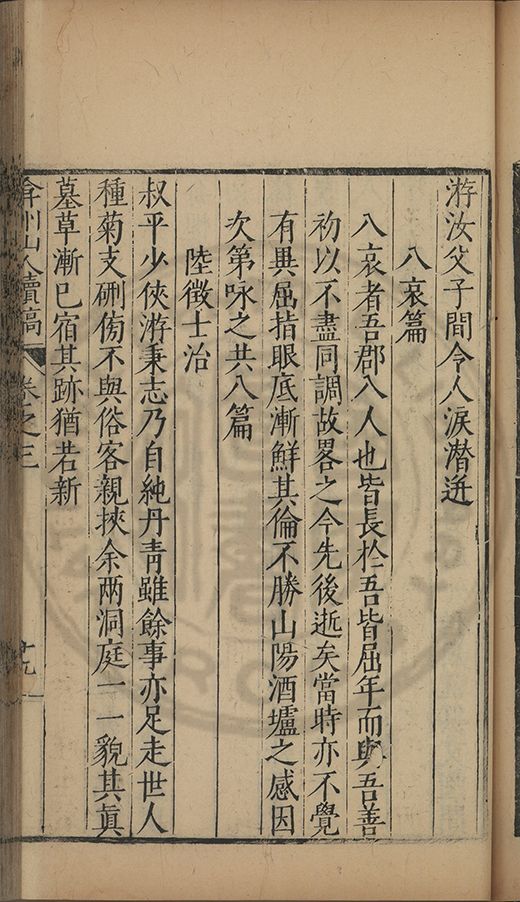 游汝父子間令人淚潜迸
八哀篇
八哀者吾郡八人也皆長於吾皆屈年而與吾善
初以不盡同調故畧之今先後逝矣當時亦不覺
有異屈指眼底漸鮮其倫不勝山陽酒壚之感因
次第咏之共八篇
陸徵士治
叔平少俠游秉志乃自純丹青雖餘事亦足走世人
種菊支硎傍不與俗客親挾余两洞庭一一貌其眞
墓草漸已宿其跡猶若新
弇州山人續稿 卷之三 十九